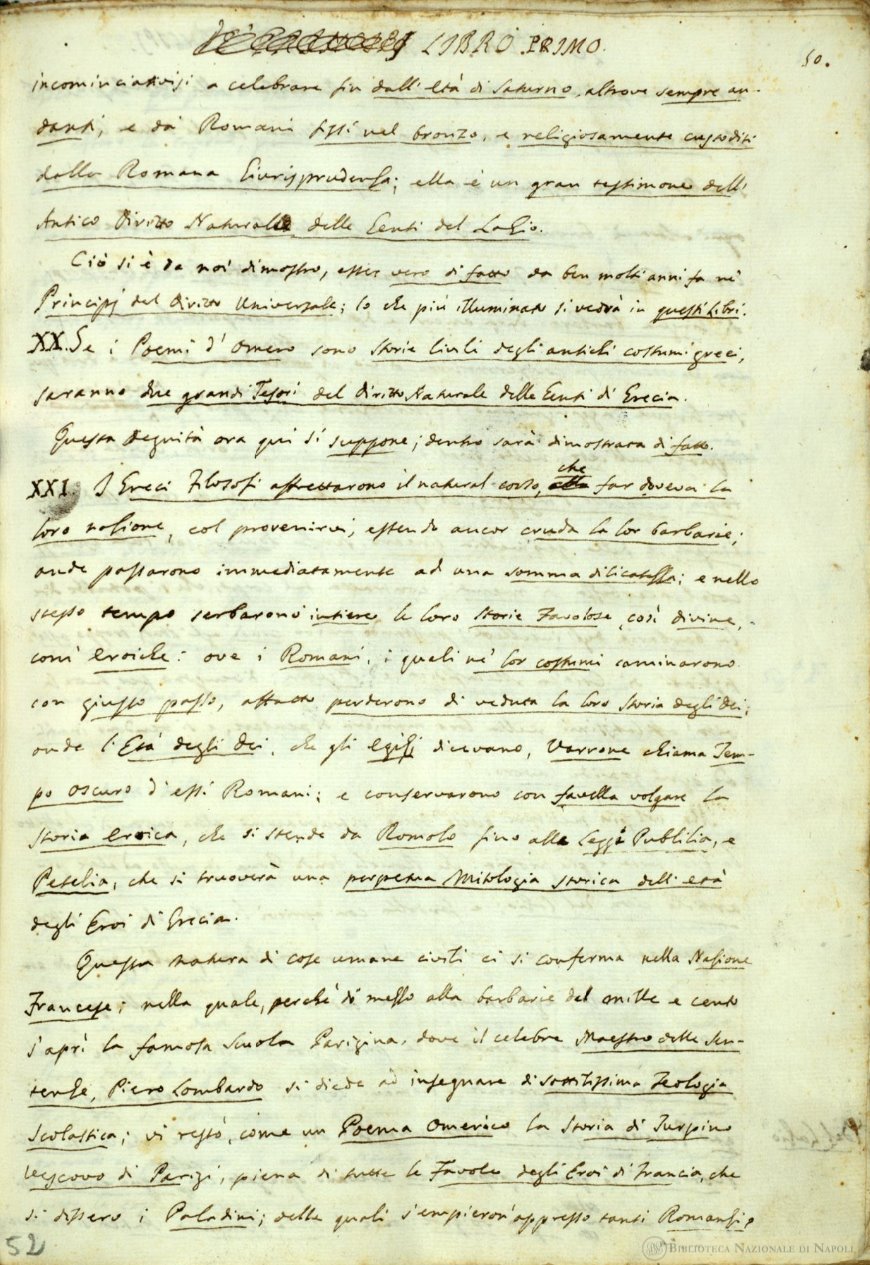 LIBRO PRIMO.
50.
incominciativisi a celebrare fin dall'età di Saturno, altrove sempre an-
danti, e da' Romani fissi nel bronzo, e religiosamente custoditi
dalla Romana Giurisprudenza; ella è un gran testimone dell'
Antico Diritto Naturale delle Genti del Lazio.
Ciò si è da noi dimostro, esser vero di fatto da ben molti anni fa ne'
Principj del Diritto Universale; lo che più illuminato si vedrà in questi Libri.
XX. Se i Poemi d'Omero sono storie civili degli antichi costumi greci,
saranno due grandi Tesori del Diritto Naturale delle Genti di Grecia.
Questa Degnità ora qui si suppone; dentro sarà dimostrata di fatto.
XXI. I Greci Filosofi affrettarono il natural corso, che far doveva la
loro nazione, col provenirvi, essendo ancor cruda la lor barbarie;
onde passarono immediatamente ad una somma dilicatezza; e nello
stesso tempo serbarono intiere le loro Storie Favolose, così divine,
com' eroiche: ove i Romani, i quali ne' lor costumi caminarono
con giusto passo, affatto perderono di veduta la loro Storia degli Dei;
onde l'Età degli Dei, che gli Egizj dicevano, Varrone chiama Tem-
po oscuro d'essi Romani; e conservarono con favella volgare la
Storia eroica, che si stende da Romolo fino alle Leggi Publilia, e
Petelia, che si truoverà una perpetua Mitologia Storica dell'età
degli Eroi di Grecia.
Questa natura di cose umane civili ci si conferma nella Nazione
Francese; nella quale, perchè di mezzo alla barbarie del mille e cento
s'aprì la famosa Scuola Parigina, dove il celebre Maestro delle Sen-
tenze, Piero Lombardo si diede ad insegnare di sottilissima Teologia
Scolastica; vi restò, come un Poema Omerico la Storia di Turpino
Vescovo di Parigi, piena di tutte le Favole degli Eroi di Francia, che
si dissero i Paladini; delle quali s'empieron'appresso tanti Romanzi,
52
BIBLIOTECA NAZIONALE DI NAPOLI